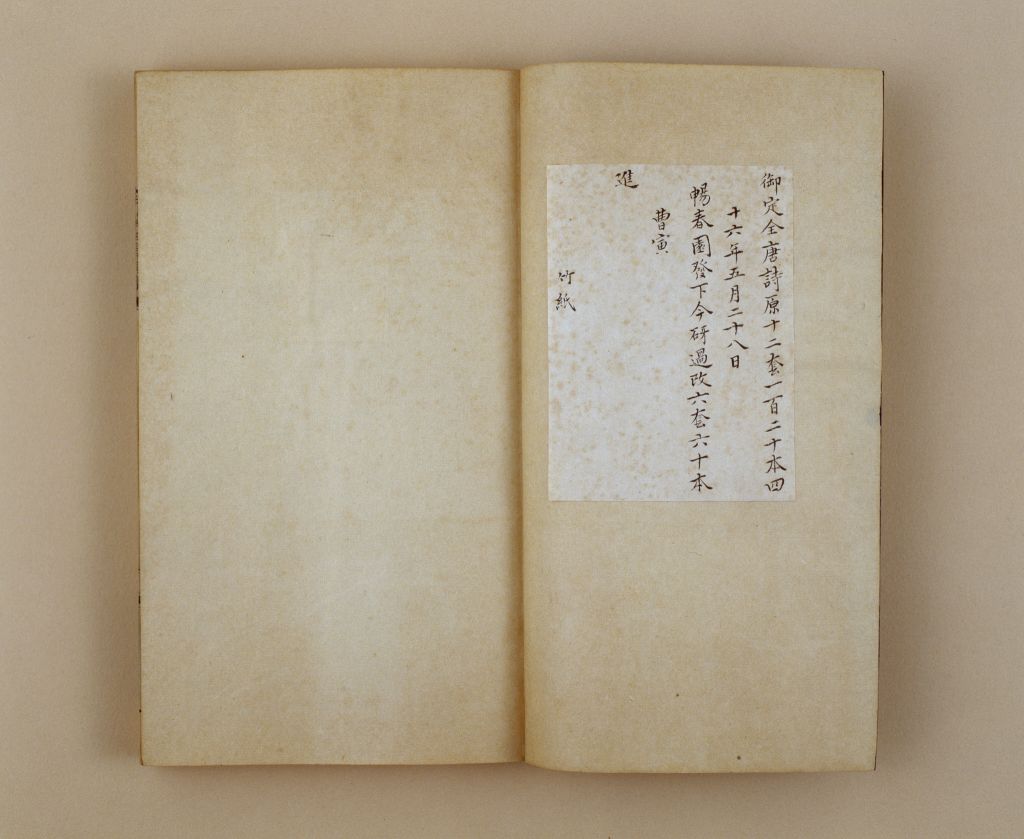 御定全唐詩原十二套一百二十本四
十六年五月二十八日
暢春園發下今砑過改六套六十本
曹寅
進
竹紙